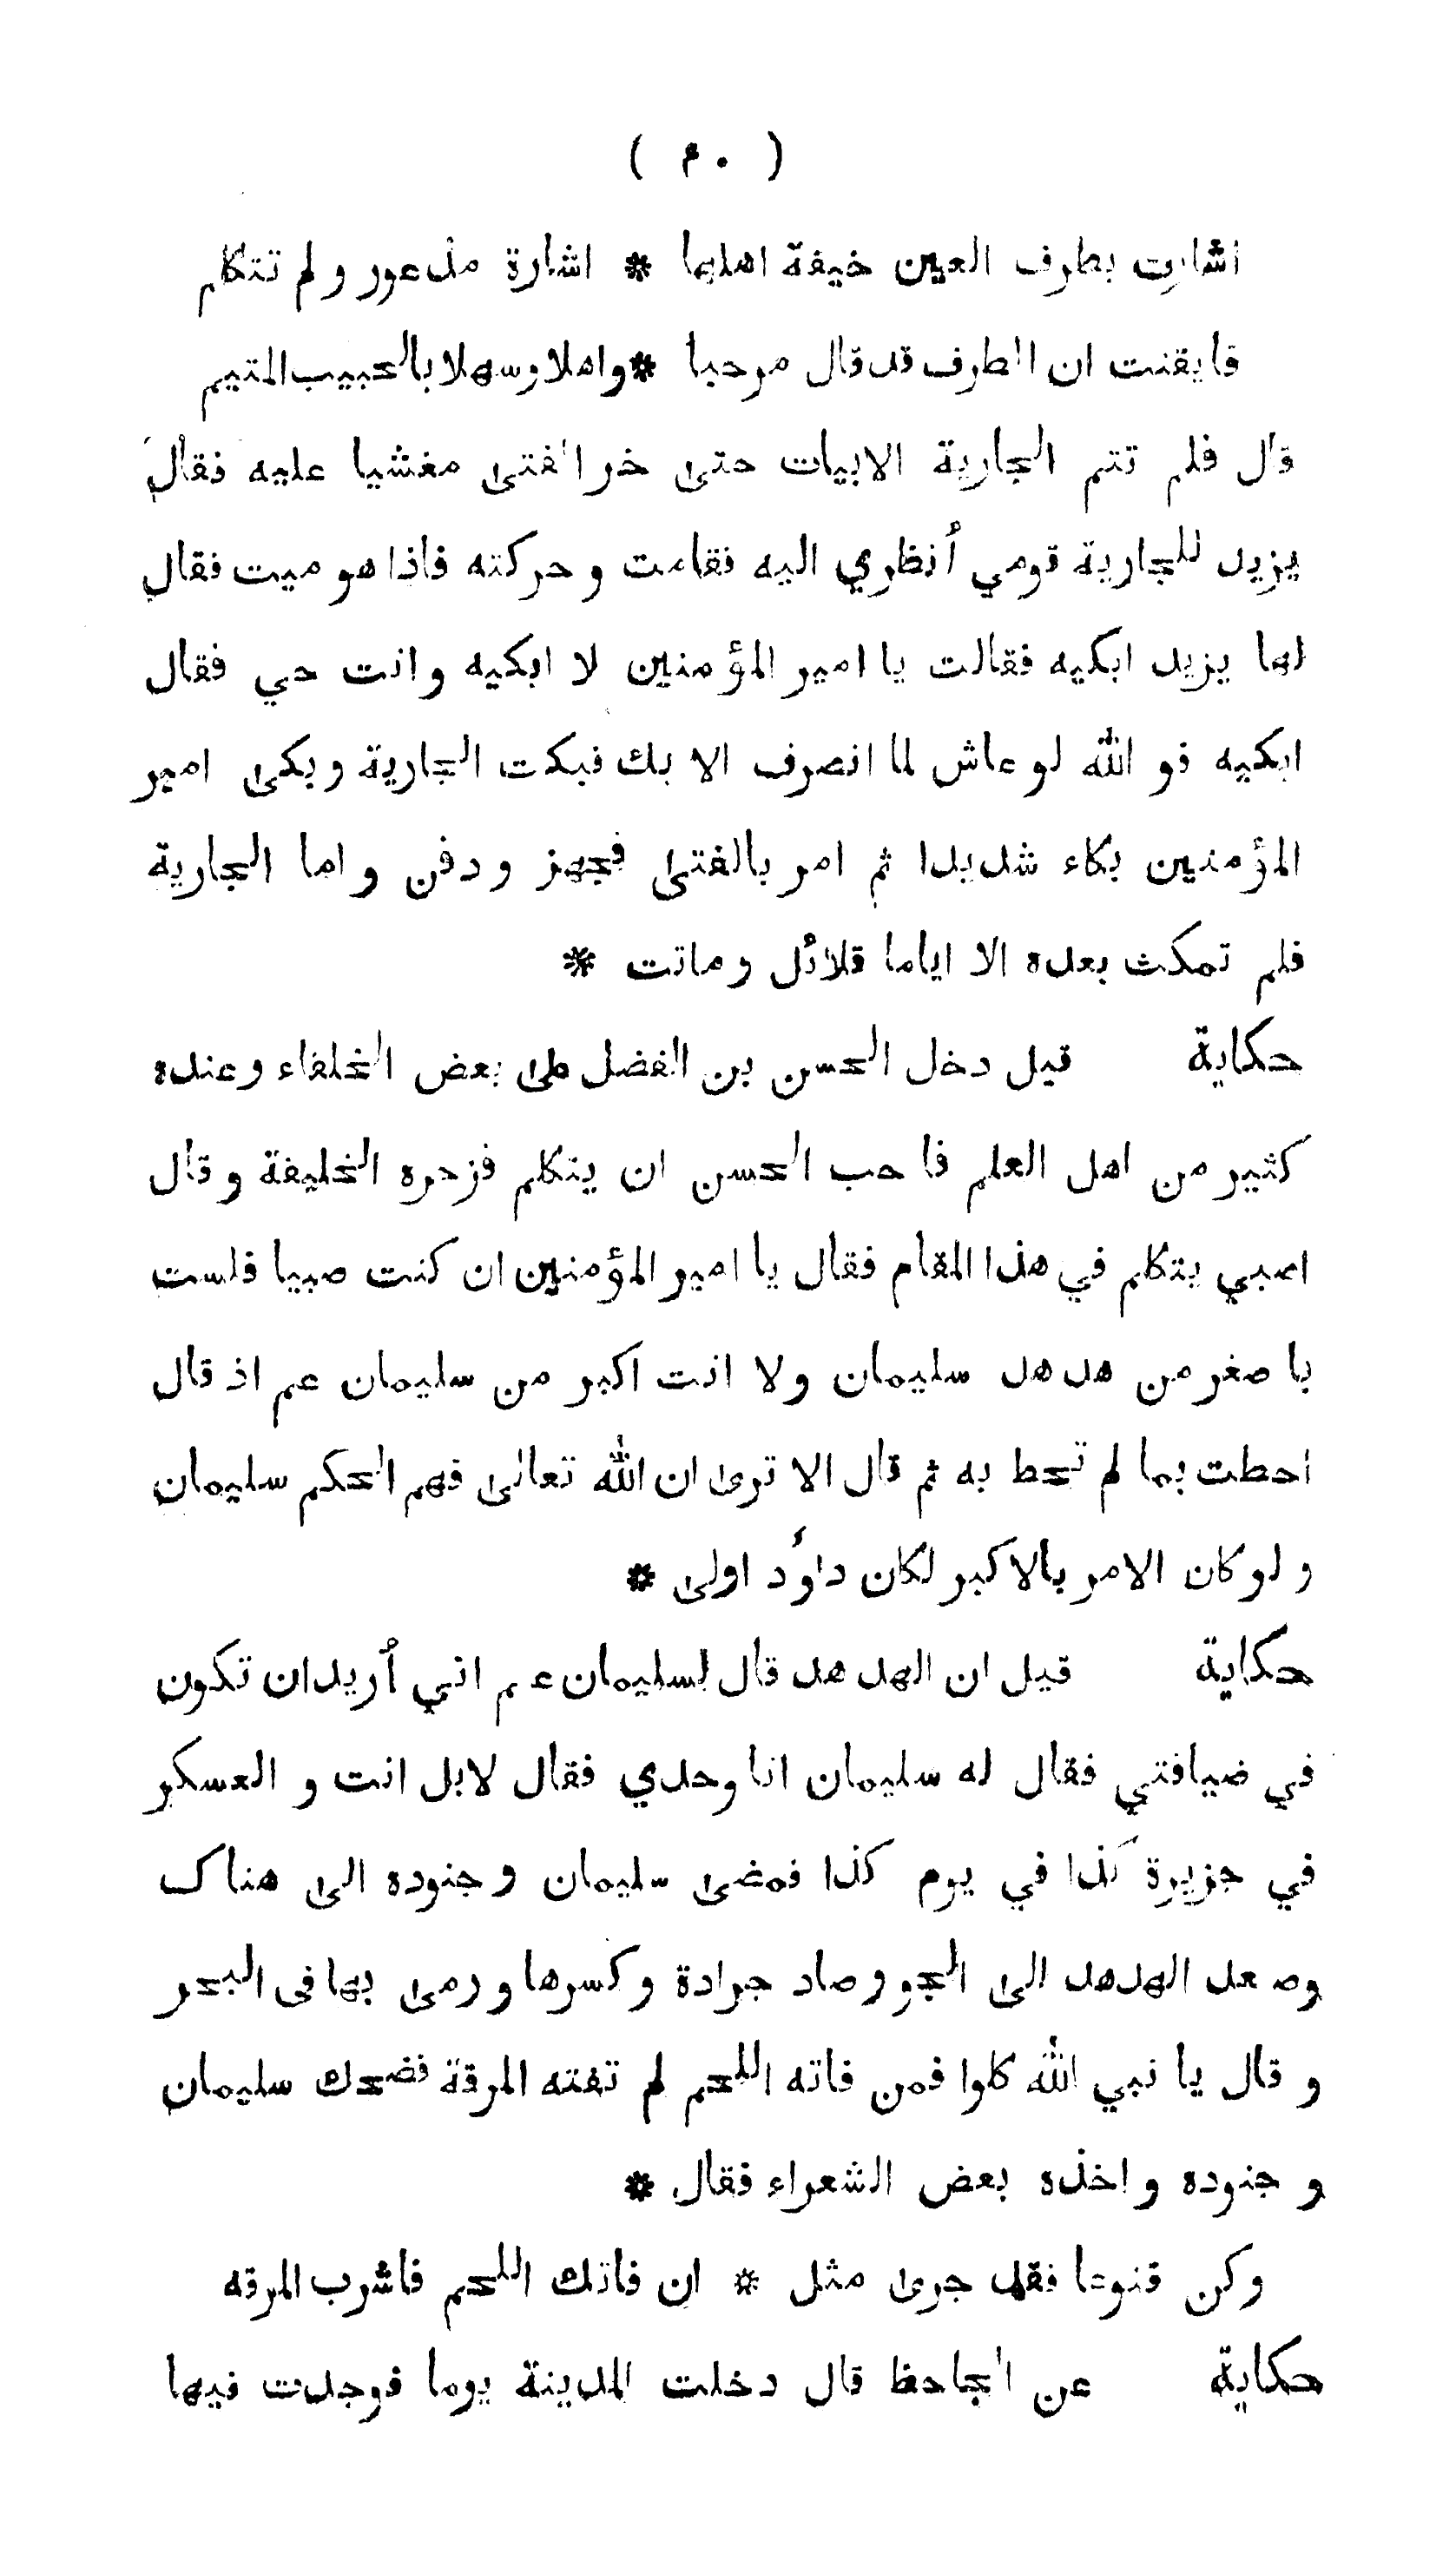 ( ٤٠ )
اشارت بطرف العين خيفة اهلها * اشارة مذعور ولم تتكلم
فايقنت ان الطرف قد قال مرحبا * واهلا وسهلا بالحبيب المتيم
قال فلم تتم الجارية الابيات حتى خر الفتى مغشيا عليه فقال
يزيد للجارية قومي أنظري اليه فقامت وحركته فاذا هو ميت فقال
لها يزيد ابكيه فقالت يا امير المؤمنين لا ابكيه وانت حي فقال
ابكيه فو الله لو عاش لما انصرف الا بك فبكت الجارية وبكى امير
المؤمنين بكاء شديدا ثم امر بالفتى فجهز ودفن واما الجارية
فلم تمكث بعده الا اياما قلائل وماتت *
حكاية قيل دخل الحسن بن الفضل على بعض الخلفاء وعنده
كثير من اهل العلم فاحب الحسن ان يتكلم فزجره الخليفة وقال
اصبي يتكلم في هذا المقام فقال يا امير المؤمنين ان كنت صبيا فلست
باصغر من هدهد سليمان ولا انت اكبر من سليمان عم اذ قال
احطت بما لم تحط به ثم قال الا ترى ان الله تعالى فهم الحكم سليمان
ولو كان الامر بالاكبر لكان داوٗد اولى *
حكاية قيل ان الهدهد قال لسليمان عم اني أريد ان تكون
في ضيافتي فقال له سليمان انا وحدي فقال لا بل انت والعسكر
في جزيرة كذا في يوم كذا فمضى سليمان وجنوده الى هناك
وصعد الهدهد الى الجو وصاد جرادة وكسرها ورمى بها فى البحر
وقال يا نبي الله كلوا فمن فاته اللحم لم تفته المرقة فضحك سليمان
وجنوده واخذه بعض الشعراء فقال *
وكن قنوعا فقد جرى مثل * ان فاتك اللحم فاشرب المرقه
حكاية عن الجاحظ قال دخلت المدينة يوما فوجدت فيها